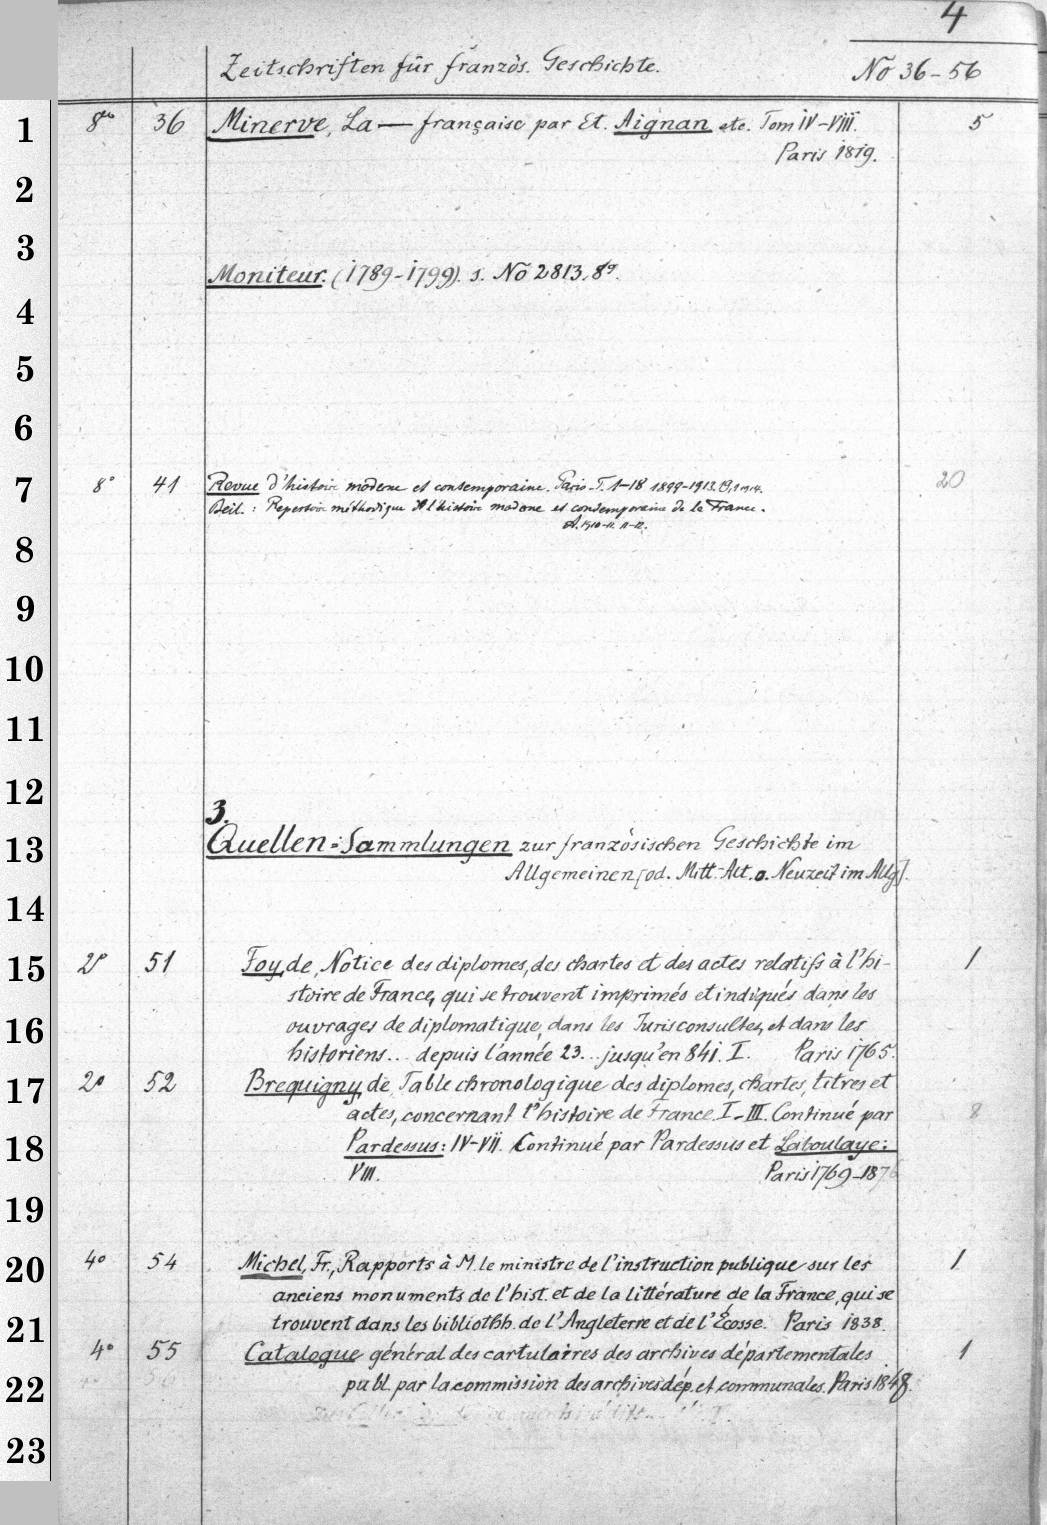 4
Zeitschriften für französ. Geschichte.
No 36-56
8vo 36 Minerve, La — française par Et. Aignan etc. Tom IV-VIII. 5
Paris 1819.
Moniteur. (1789-1799). s. No 2813, 8º.
8º 41 Revue d'histoire moderne et contemporaine. Paris. T. 1-18 1899-1913. 20
Beil.: Repertoire méthodique de l'histoire moderne et contemporaine de la France.
3.
Quellen-Sammlungen zur französischen Geschichte im
Allgemeinen [od. Mitt.-Alt. o. Neuzeit im Allg].
2º 51 Foy, de, Notice des diplomes, des chartes et des actes relatifs à l'hi- 1
stoire de France, qui se trouvent imprimés et indiqués dans les
ouvrages de diplomatique, dans les Jurisconsultes, et dans les
historiens... depuis l'année 23... jusqu'en 841. I. Paris 1765.
2º 52 Brequigny, de, Table chronologique des diplomes, chartes, titres et
actes, concernant l'histoire de France. I-III. Continué par 8
Pardessus: IV-VII. Continué par Pardessus et Laboulaye:
VIII. Paris 1769-1876
4º 54 Michel, Fr., Rapports à M. le ministre de l'instruction publique sur les 1
anciens monuments de l'hist. et de la littérature de la France, qui se
trouvent dans les bibliothh. de l'Angleterre et de l'Écosse. Paris 1838.
4º 55 Catalogue général des cartulaires des archives départementales 1
publ. par la commission des archives dép. et communales. Paris 1848.
1
2
3
4
5
6
7
8
9
10
11
12
13
14
15
16
17
18
19
20
21
22
23